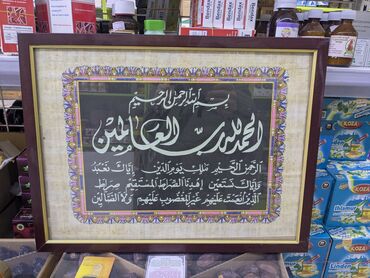 بسم الله الرحمن الرحيم
الحمد لله رب العالمين
الرحمن الرحيم ملك يوم الدين إياك نعبد
وإياك نستعين إهدنا الصراط المستقيم صراط
الذين أنعمت عليهم غير المغضوب عليهم ولا الضالين
KOZA